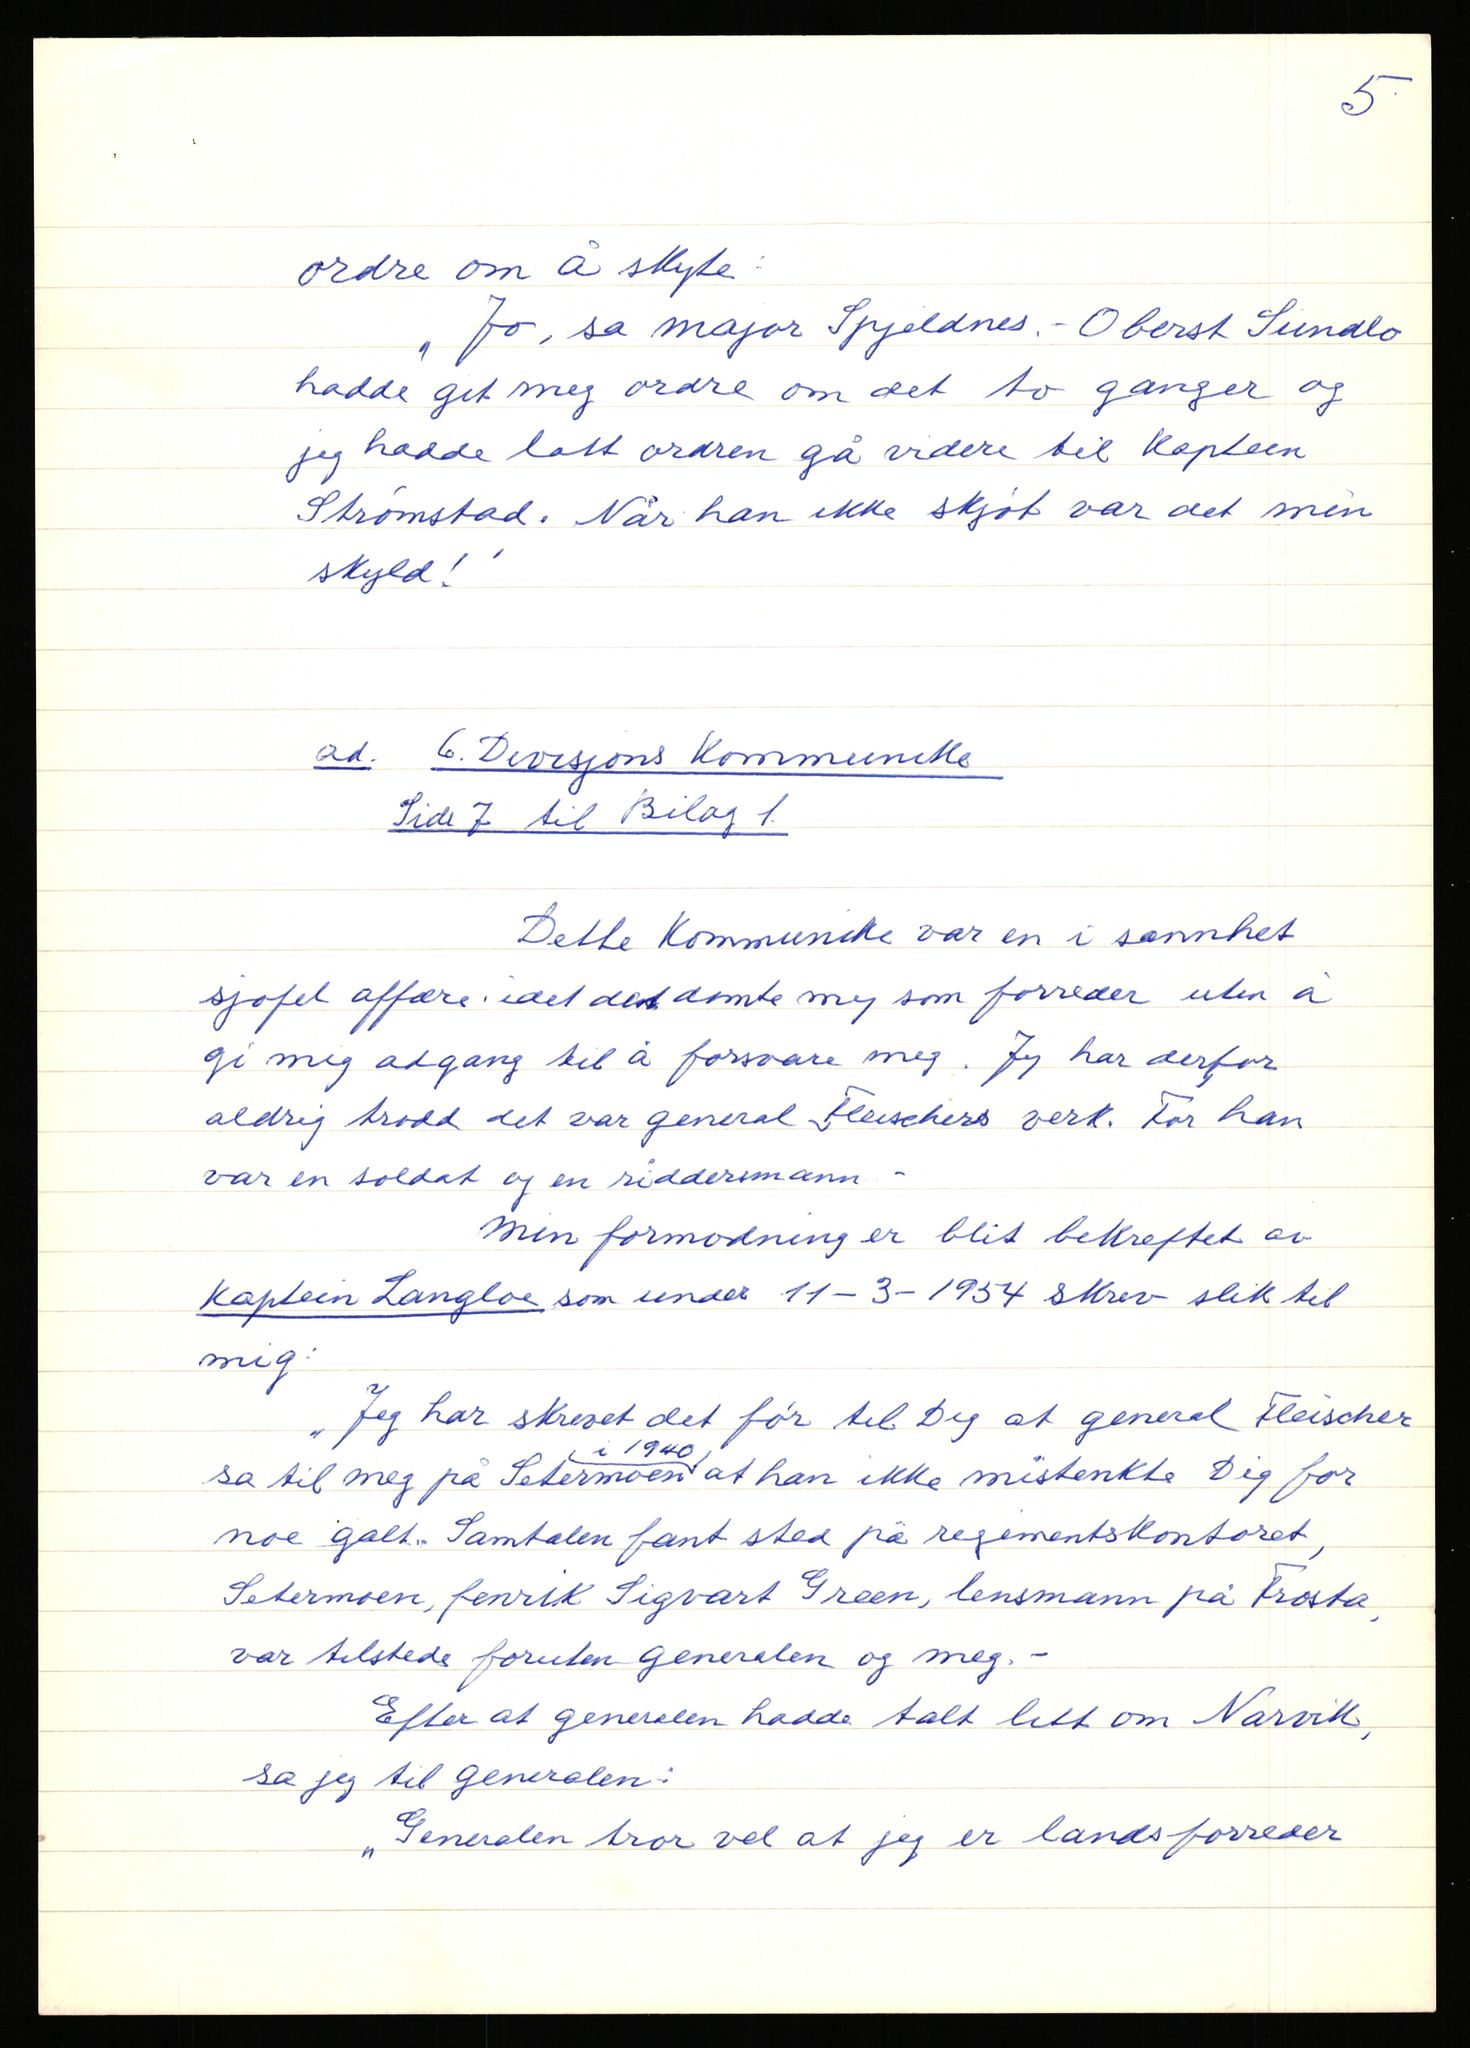 5
ordre om å skyte:
„Jo, sa major Spjeldnes. - Oberst Sundlo
hadde git meg ordre om det to ganger og
jeg hadde latt ordren gå videre til Kaptein
Strømstad. Når han ikke skjøt var det min
skyld!"
ad. 6. Divisjons Kommunike
Side 7 til Bilag 1.
Dette Kommunike var en i sannhet
sjofel affære idet det dømte meg som forreder uten å
gi mig adgang til å forsvare meg. Jeg har derfor
aldrig trodd det var general Fleischers verk. For han
var en soldat og en riddersmann -
Min formodning er blit bekreftet av
Kaptein Langloe som under 11-3-1954 skrev slik til
mig:
„Jeg har skrevet det før til Dig at general Fleischer
i 1940
sa til meg på Setermoen at han ikke mistenkte Dig for
noe galt. Samtalen fant sted på regimentskontoret,
Setermoen, fenrik Sigvart Green, lensmann på Frosta,
var tilstede foruten generalen og meg. -
Efter at generalen hadde talt litt om Narvik,
sa jeg til generalen:
„Generalen tror vel at jeg er landsforreder